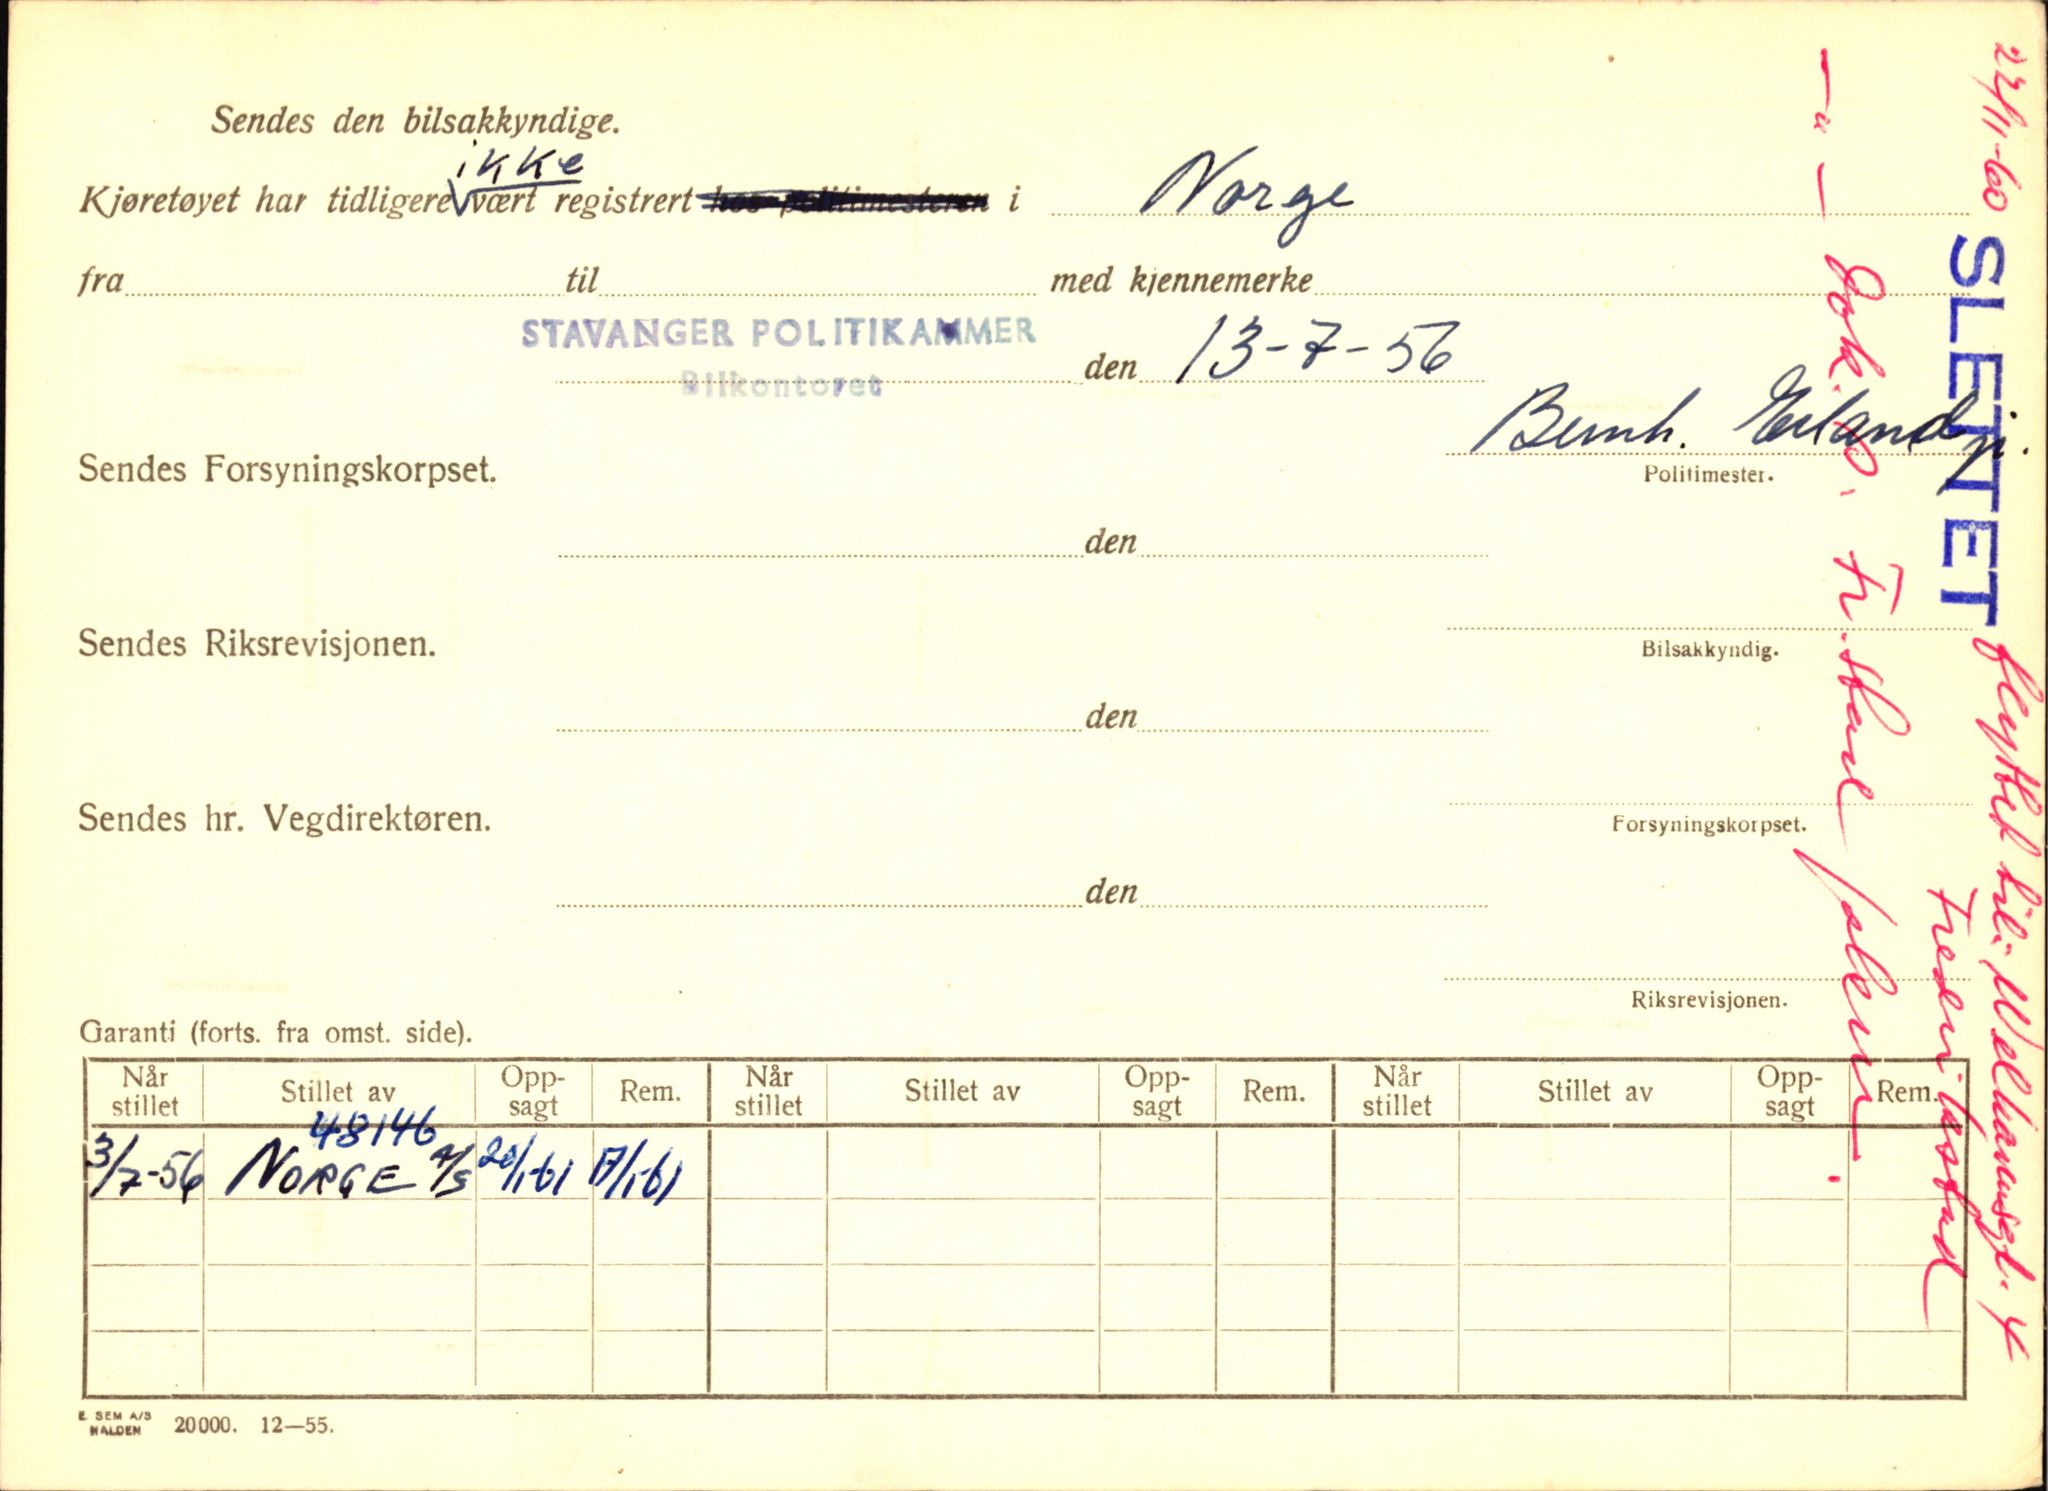 Sendes den bilsakkyndige.
ikke
Kjøretøyet har tidligere vært registrert hos politimesteren i Norge
fra til med kjennemerke
STAVANGER POLITIKAMMER
Bilkontoret
den 13-7-56
Bernh. Eiland jr.
Sendes Forsyningskorpset.
Politimester.
den
Sendes Riksrevisjonen.
Bilsakkyndig.
den
Sendes hr. Vegdirektøren.
Forsyningskorpset.
den
Riksrevisjonen.
Garanti (forts. fra omst. side).
Når stillet Stillet av Opp-sagt Rem. Når stillet Stillet av Opp-sagt Rem. Når stillet Stillet av Opp-sagt Rem.
48146
3/7-56 NORGE A/S 20/1-61 17/1-61
E. SEM A/S HALDEN 20000. 12—55.
22/11-60 SLETTET flyttet til: Welhavensgt. 4
Fredrikstad